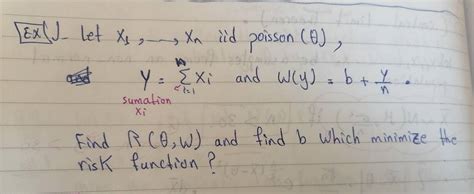 Ex(J_ Let X₁, —, Xn iid poisson (θ),
Y = Σ Xi and W(y) = b + y/n .
n
i=1
sumation
Xi
Find R(θ,W) and find b which minimize the
risk function ?